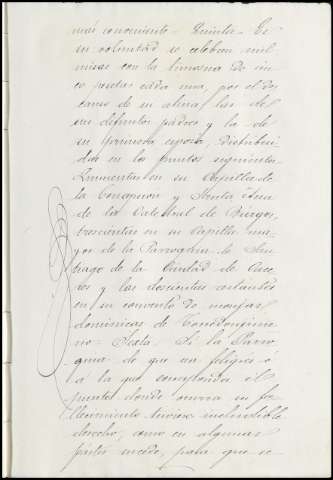 más conveniente. Quinta. Es
su voluntad se celebren mil
misas con la limosna de cin
co pesetas cada una, por el des
canso de su alma, las de
sus difuntos padres y la de
su primera esposa, distribui
das en los puntos siguientes.
Quinientas en su Capilla de
la Concepción y Santa
de la Catedral de Burgos,
trescientas en su Capilla ma
yor de la Parroquia de San
tiago de la Ciudad de Cáce
res y las doscientas restantes
en su convento de monjas
dominicas de
Sexta. Si la Parro
quia de que sea feligrés ó
á la que corresponda el
punto donde ocurra su fa
llecimiento tuviese ineludible
derecho, como en algunas
partes sucede, para que se